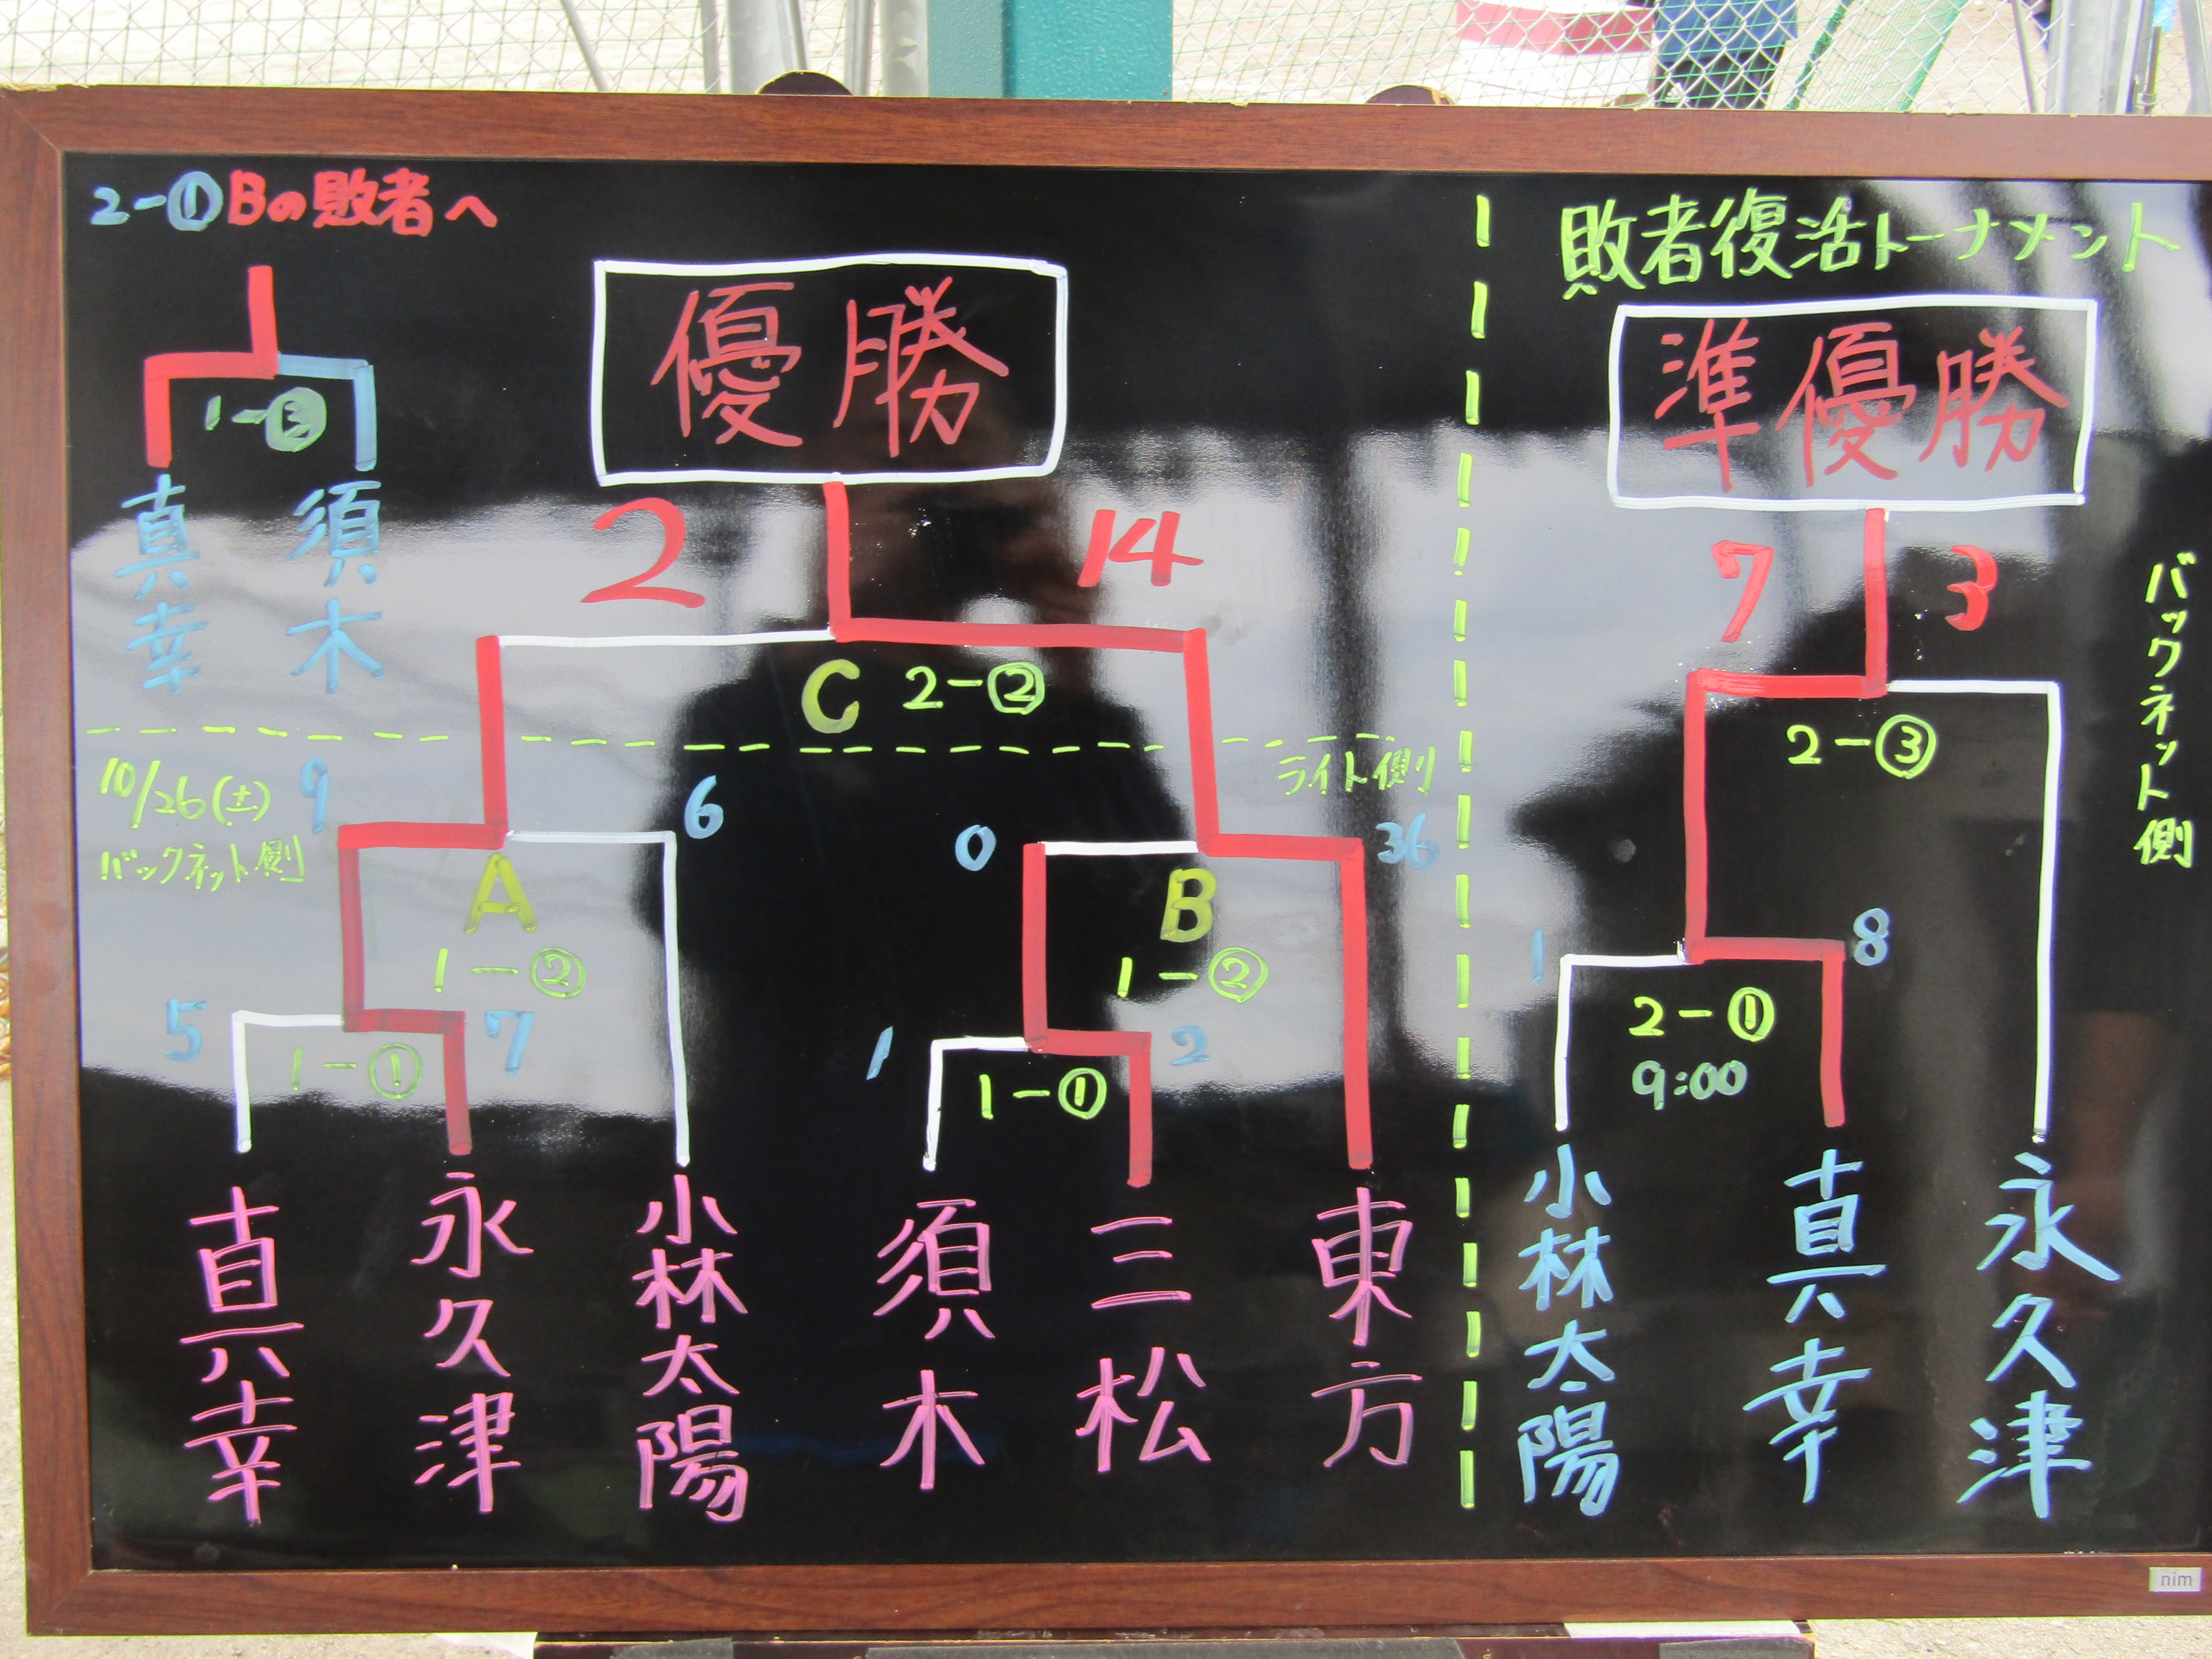 2-①Bの敗者へ
1-③
真幸
須木
優勝
2
14
C 2-②
10/26(土)
バックネット側
ライト側
9
6
A
1-②
5
7
1-①
0
36
B
1-②
1
2
1-①
真幸
永久津
小林太陽
須木
三松
東方
敗者復活トーナメント
準優勝
7
3
2-③
バックネット側
1
8
2-①
9:00
小林太陽
真幸
永久津
nim